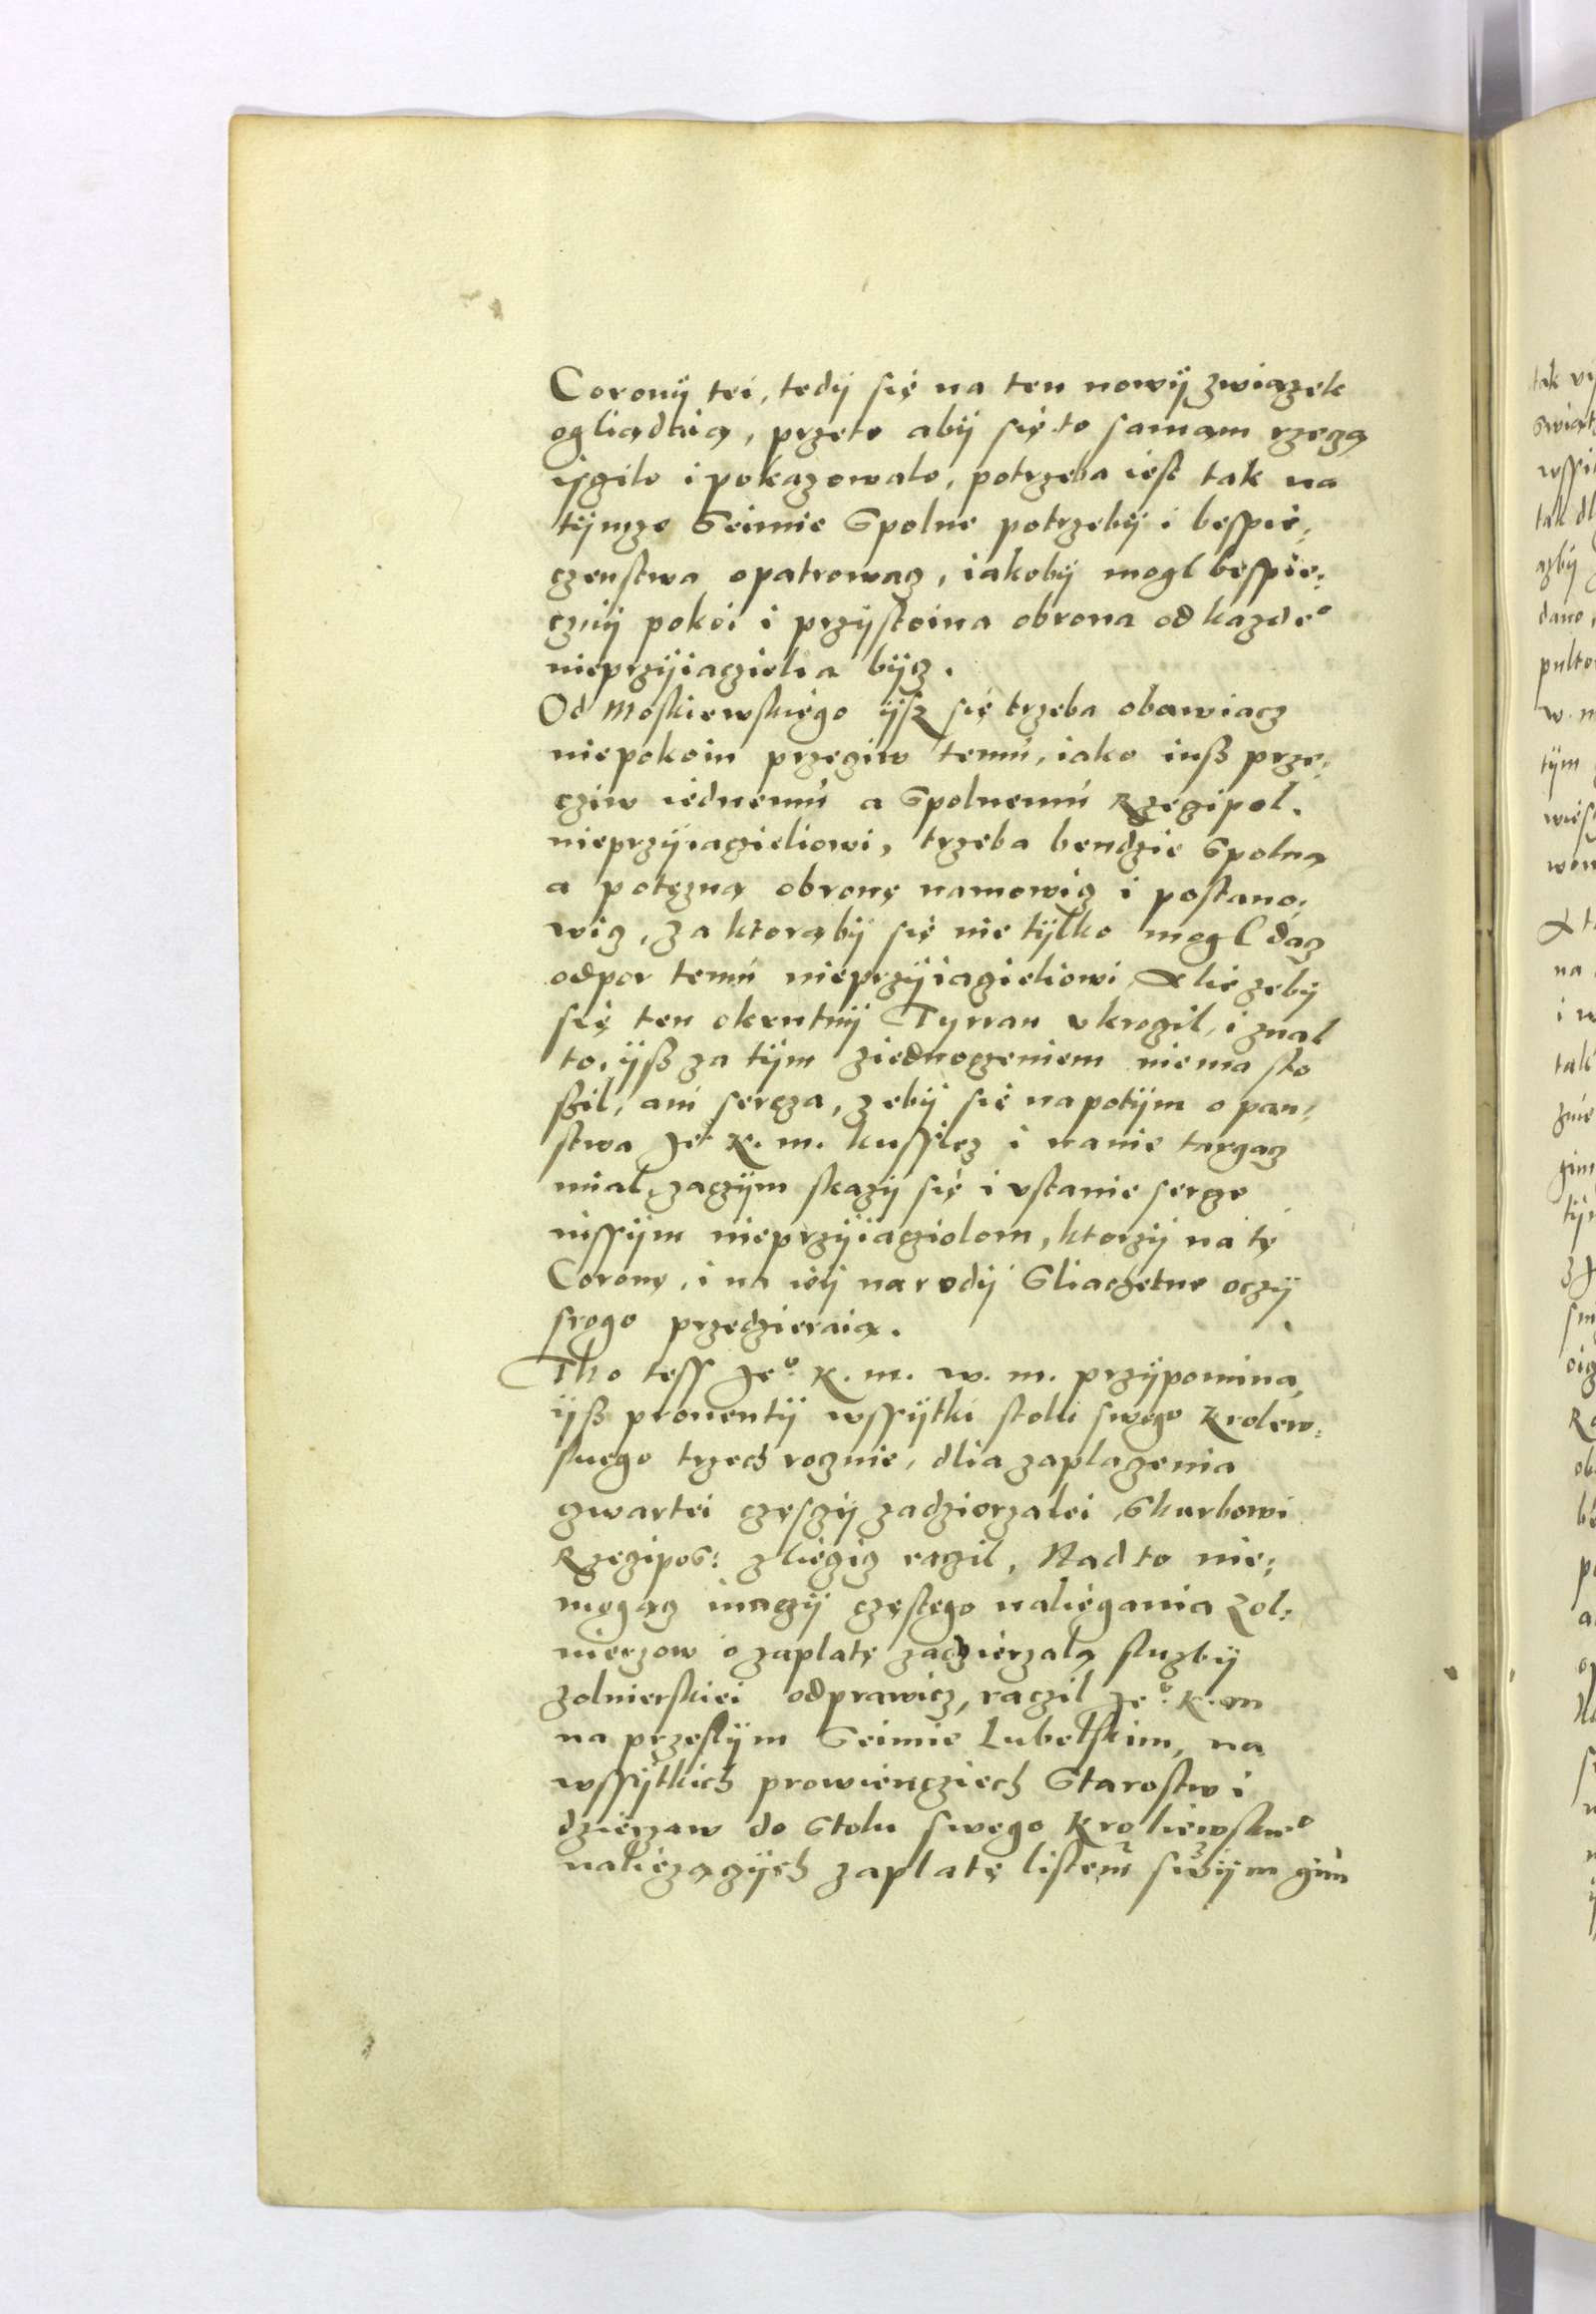 Coronÿ tei, tedÿ się na ten nowÿ związek
ogliądaią, przeto abÿ się to samąm rzeczą
isczilo i pokazowalo, potrzeba iest tak na
tÿmze Seimie Spolne potrzebÿ i bespie,
czenstwa opatrowacz, iakobÿ mogl bespie:
cznÿ pokoi i przÿstoina obrona od kazdeo
nieprzÿiacziela bÿcz.
Od Moskiewskiégo ÿsz się trzeba obawiacz
niepokoiu przeciw temu, iako iusz prze:
cziw iednemu a Spolnemu Rzeczipol.
nieprzÿiaczieliowi, trzeba bendzie Spolną
a potęzną obronę namowicz i postano:
wicz, za ktorąbÿ się nie tÿlko mogl dacz
odpor temu nieprzÿiaczieliowi Alie zebÿ
się ten okrutnÿ Tyrran ukroczil, i znal
to, ÿsz za tÿm ziednoczeniem niema sto
szil, ani sercza, zebÿ się napotÿm o pan:
stwa Jeo K. m. kussicz i nanie targacz
mial, zaczÿm skazÿ się i ustanie sercze
inssÿm nieprzÿiacziolom, ktorzÿ na tę
Coronę, i na ieÿ narodÿ Sliachetne oczÿ
srogo przedzieraią.
Tho tess Jeo K. m. w. m. przÿpomina,
ÿsz prouentÿ wssÿtki stolu swego Krolew:
skiego trzech rocznie, dlia zaplaczenia
czwartei częsczÿ zadzierzalei Skarbowi
Rzeczipos: zliecicz raczil, Nad to nie:
mogącz inaczÿ częstego naliegania Zol:
nierzow o zaplatę zadzierzalą sluzbÿ
zolnierskiei odprawicz, raczil Jeo K. m
na przeslÿm Seimie Lubelskim, na
wssÿtkich prowienciech Starostw i
dzierzaw do Stolu swego Kroliewskieo
naliezączÿch zaplatę listem swÿm